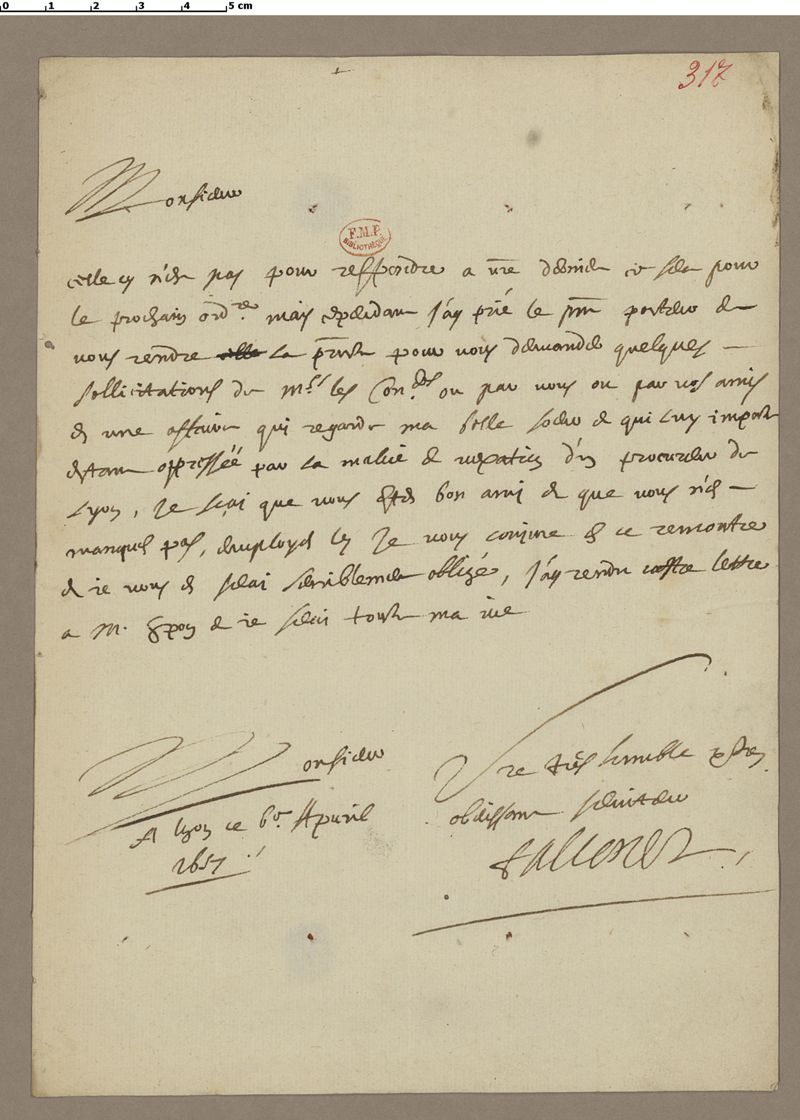 0 1 2 3 4 5 cm
317
Monsieur
F.M.P. BIBLIOTHÈQUE
celle cy n'est pas pour respondre a vre derniere ce sera pour
le prochain ordre mais cependant J'ay prié le pnt porteur de
vous rendre la prnte pour vous demander quelques
sollicitations de Mrs les Con. ou par vous ou par vos amis
en une affaire qui regarde ma belle soeur et qui luy importe
estant oppressée par la malice et vexation d'un procureur de
Lyon, Je sçai que vous estes bon ami et que vous n'en
manques pas, employes les Je vous conjure en ce rencontre
et je vous en serai sensiblement obligé, J'ay rendu vostre lettre
a M. Spon et je serai toute ma vie
Monsieur
Vre tres humble et tres
obeissant serviteur
A Lyon ce 6e Apvril
1657
falconet